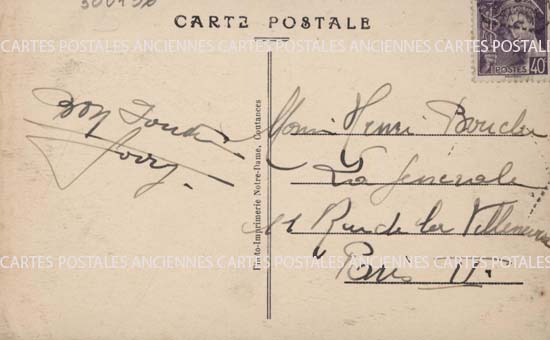 CARTE POSTALE
CARTES POSTALES ANCIENNES CARTES POSTALES ANCIENNES CARTES POSTALES
POSTES 40
Bon
Photo-Imprimerie Notre-Dame, Coutances
Henri Boucher
La Générale
11 Rue de la Villeneuve
Paris
CARTES POSTALES ANCIENNES CARTES POSTALES ANCIENNES CARTES POSTALES